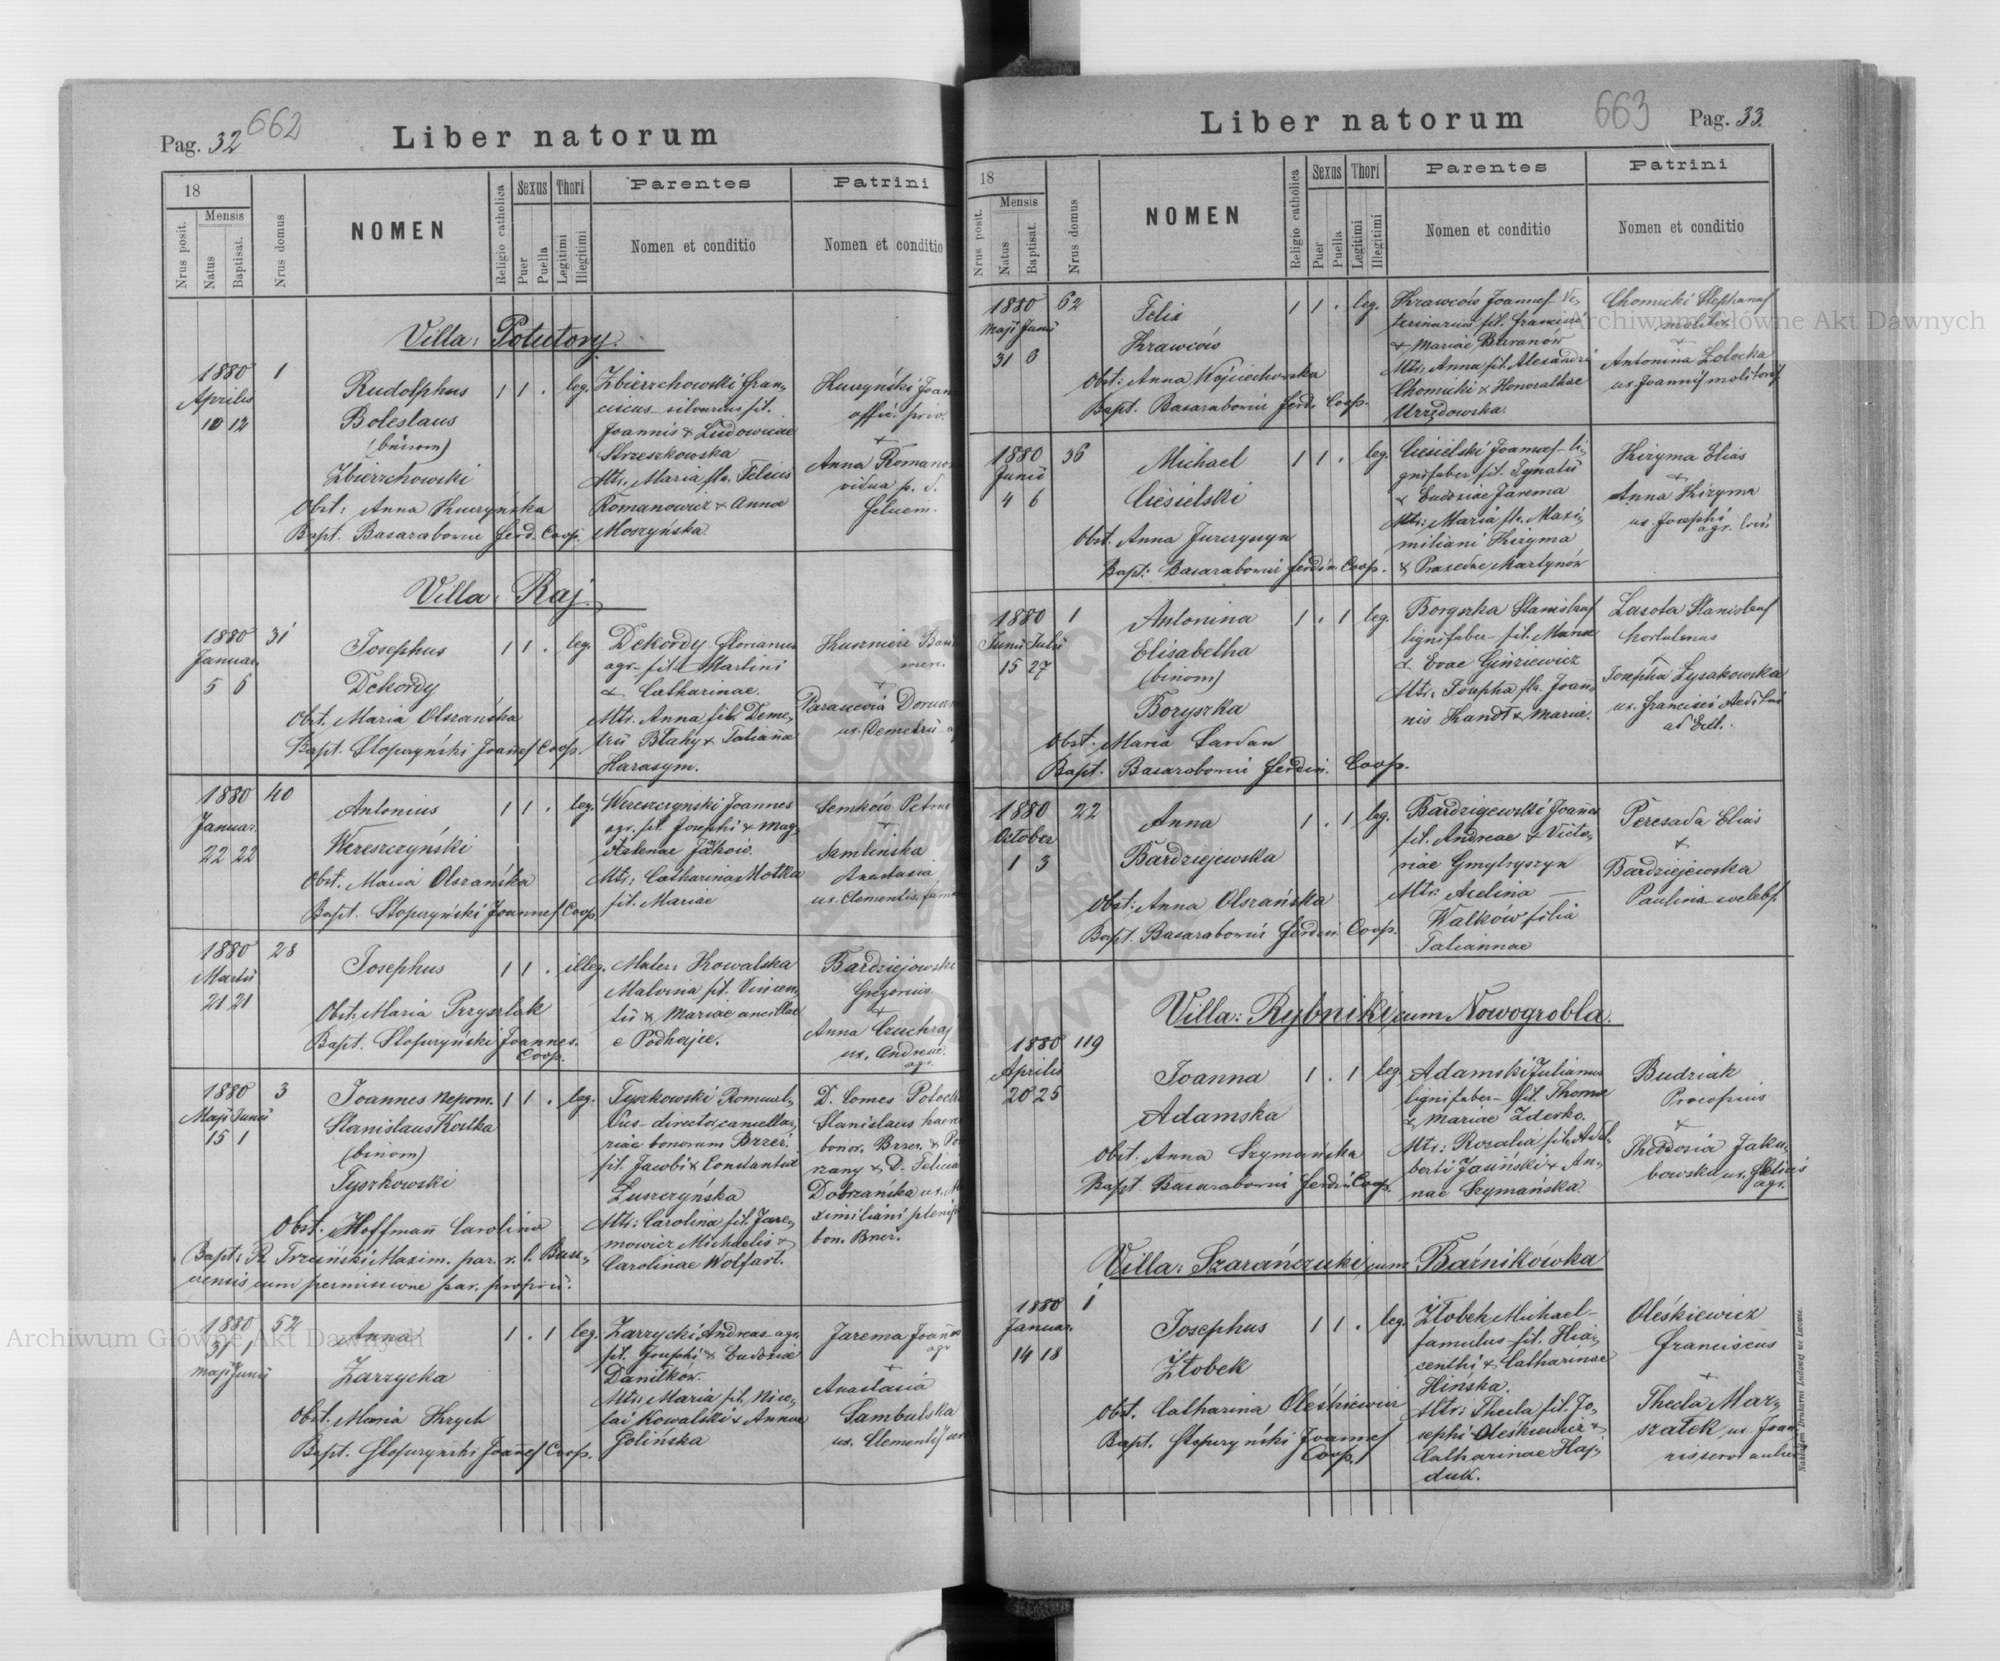 Pag. 32 662
Liber natorum
18
Nrus posit.
Mensis
Natus
Baptisat.
Nrus domus
NOMEN
Religio catholica
Sexus
Puer
Puella
Thori
Legitimi
Illegitimi
Parentes
Nomen et conditio
Patrini
Nomen et conditio
Villa: Potutory.
1880
Aprilis
10 12
1
Rudolphus
Boleslaus
(binom)
Zbierzchowski
Obst: Anna Kuczyńska
Bapt. Basarabowicz Ferd. Coop.
1 1 . leg.
Zbierzchowski Fran-
ciscus silvarius fil.
Joannis & Ludowicae
Strzeszkowska
Mtr. Maria fla. Felicis
Romanowicz & Annae
Moszyńska
Kuczyński Joan
offic. priv.
+
Anna Romano
vidua p. d.
Felicem.
Villa: Raj.
1880
Januar.
5 6
31
Josephus
Dekordy
Obst. Maria Olszańska
Bapt. Stopczyński Joannes Coop.
1 1 . leg.
Dekordy Florianus
agr. fil. Martini
& Catharinae.
Mtr. Anna fil. Deme-
trii Blahy & Tatianae
Harasym.
Kusznierz
+
Parascevia
ux. Demetrii
1880
Januar.
22 22
40
Antonius
Wereszczyński
Obst. Maria Olszańska
Bapt. Stopczyński Joannes Coop.
1 1 . leg.
Wereszczynski Joannes
agr. fil. Josephi & Mag-
dalenae Jaków.
Mtr: Catharina Motka
fil. Mariae
Semków Petrus
+
Samlinska
Anastasia
ux. Clementis
1880
Martii
21 21
28
Josephus
Obst. Maria Przyszlak
Bapt. Stopczyński Joannes.
Coop.
1 1 . illeg.
Mater: Kowalska
Malvina fil. Vincen-
tii & Mariae ancillae
e Podhajce.
Bardziejowski
Gregorius
+
Anna Czuchraj
ux. Andreae
agr.
1880
Maji Junii
15 1
3
Joannes Nepom.
Stanislaus Kostka
(binom)
Tyszkowski
Obst. Hoffmann Carolina
Bapt: R. Trzciński Maxim. par. r. l. Busz-
censis cum permissione par. proprii.
1 1 . leg.
Tyszkowski Romual-
dus director cancella-
riae bonorum Brzez.
fil. Jacobi & Constantiae
Łuszczyńska
Mtr: Carolina fil. Jare-
mowicz Michaelis &
Carolinae Wolfart.
D. Comes Potocki
Stanislaus haeres
bonor. Brzez. &
& D. Felicia
Dobrzańska ux.
ximiliani
bon. Brzez.
1880
31 1
Maji Junii
52
Anna
Zarzycka
Obst. Maria Hrych
Bapt. Stopczyński Joannes Coop.
1 . 1 leg.
Zarzycki Andreas agr.
fil. Josephi & Eudoxiae
Daniłków.
Mtr: Maria fil. Nico-
lai Kowalski & Annae
Golińska
Jarema Joannes
agr
+
Anastasia
Sambulska
ux. Clementis
Liber natorum
663 Pag. 33.
18
Nrus posit.
Mensis
Natus
Baptisat.
Nrus domus
NOMEN
Religio catholica
Sexus
Puer
Puella
Thori
Legitimi
Illegitimi
Parentes
Nomen et conditio
Patrini
Nomen et conditio
1880
Maji Junii
31 3
62
Felix
Krawców
Obst: Anna Wojciechowska
Bapt. Basarabowicz Ferd. Coop.
1 1 . leg.
Krawców Joannes Ve-
terinarius fil. Francisci
& Mariae Baranów
Mtr. Anna fil. Alexandri
Chomicki & Honorathae
Urzędowska.
Chomicki Stephanus
molitor
+
Antonina Łotocka
ux. Joannis molitoris
1880
Junii
4 6
36
Michael
Ciesielski
Obst. Anna Jurczyszyn
Bapt: Basarabowicz Ferdin. Coop.
1 1 . leg.
Ciesielski Joannes li-
gnifaber fil. Ignatii
& Eudoxiae Jarema
Mtr: Maria fla. Maxi-
miliani Kizyma
& Praxedae Martynów
Kizyma Elias
+
Anna Kizyma
ux. Josephi
agr. loci
1880
Junii Julii
15 27
1
Antonina
Elisabetha
(binom)
Boryszka
Obst: Maria Cardan
Bapt. Basarabowicz Ferdin. Coop.
1 . 1 leg.
Boryszka Stanislaus
lignifaber fil.
& Evae
Mtr: Josepha fla. Joan-
nis Kandt & Maria.
Lasota Stanislaus
hortulanus
+
Josepha Łysakowska
ux. Francisci Aeditui
ad Eccl.
1880
October
1 3
22
Anna
Bardziejewska
Obst: Anna Olszańska
Bapt. Basarabowicz Ferdin. Coop.
1 . 1 leg.
Bardziejewski Joannes
fil. Andreae & Victo-
riae Gmytryszyn
Mtr: Axelina —
Walków filia
Tatiannae
Peresada Elias
+
Bardziejewska
Paulina coelebs.
Villa: Rybniki, cum Nowogrobla.
1880
Aprilis
20 25
119
Joanna
Adamska
Obst. Anna Szymańska
Bapt. Basarabowicz Ferdin. Coop.
1 . 1 leg.
Adamski Julianus
lignifaber fil. Thomae
& Mariae Zderko.
Mtr: Rozalia fil. Adal-
berti Jasiński & An-
nae Szymańska.
Budziak
Procopius
+
Theodosia Jaku-
bowska ux.
agr.
Villa: Szarańczuki cum Baśnikówka
1880
Januar.
14 18
1
Josephus
Żłobek
Obst. Catharina Oleśkiewicz
Bapt. Stopczyński Joannes
Coop.
1 1 . leg.
Żłobek Michael
famulus fil. Hia-
centhi & Catharinae
Hińska.
Mtr: Thecla fil. Jo-
sephi Oleśkiewicz &
Catharinae Haj-
duk.
Oleśkiewicz
Franciscus
+
Thecla Mar-
szałek ux. Joan
nis
Nakładem Drukarni Ludowej we Lwowie.
Archiwum Główne Akt Dawnych
Archiwum Główne Akt Dawnych